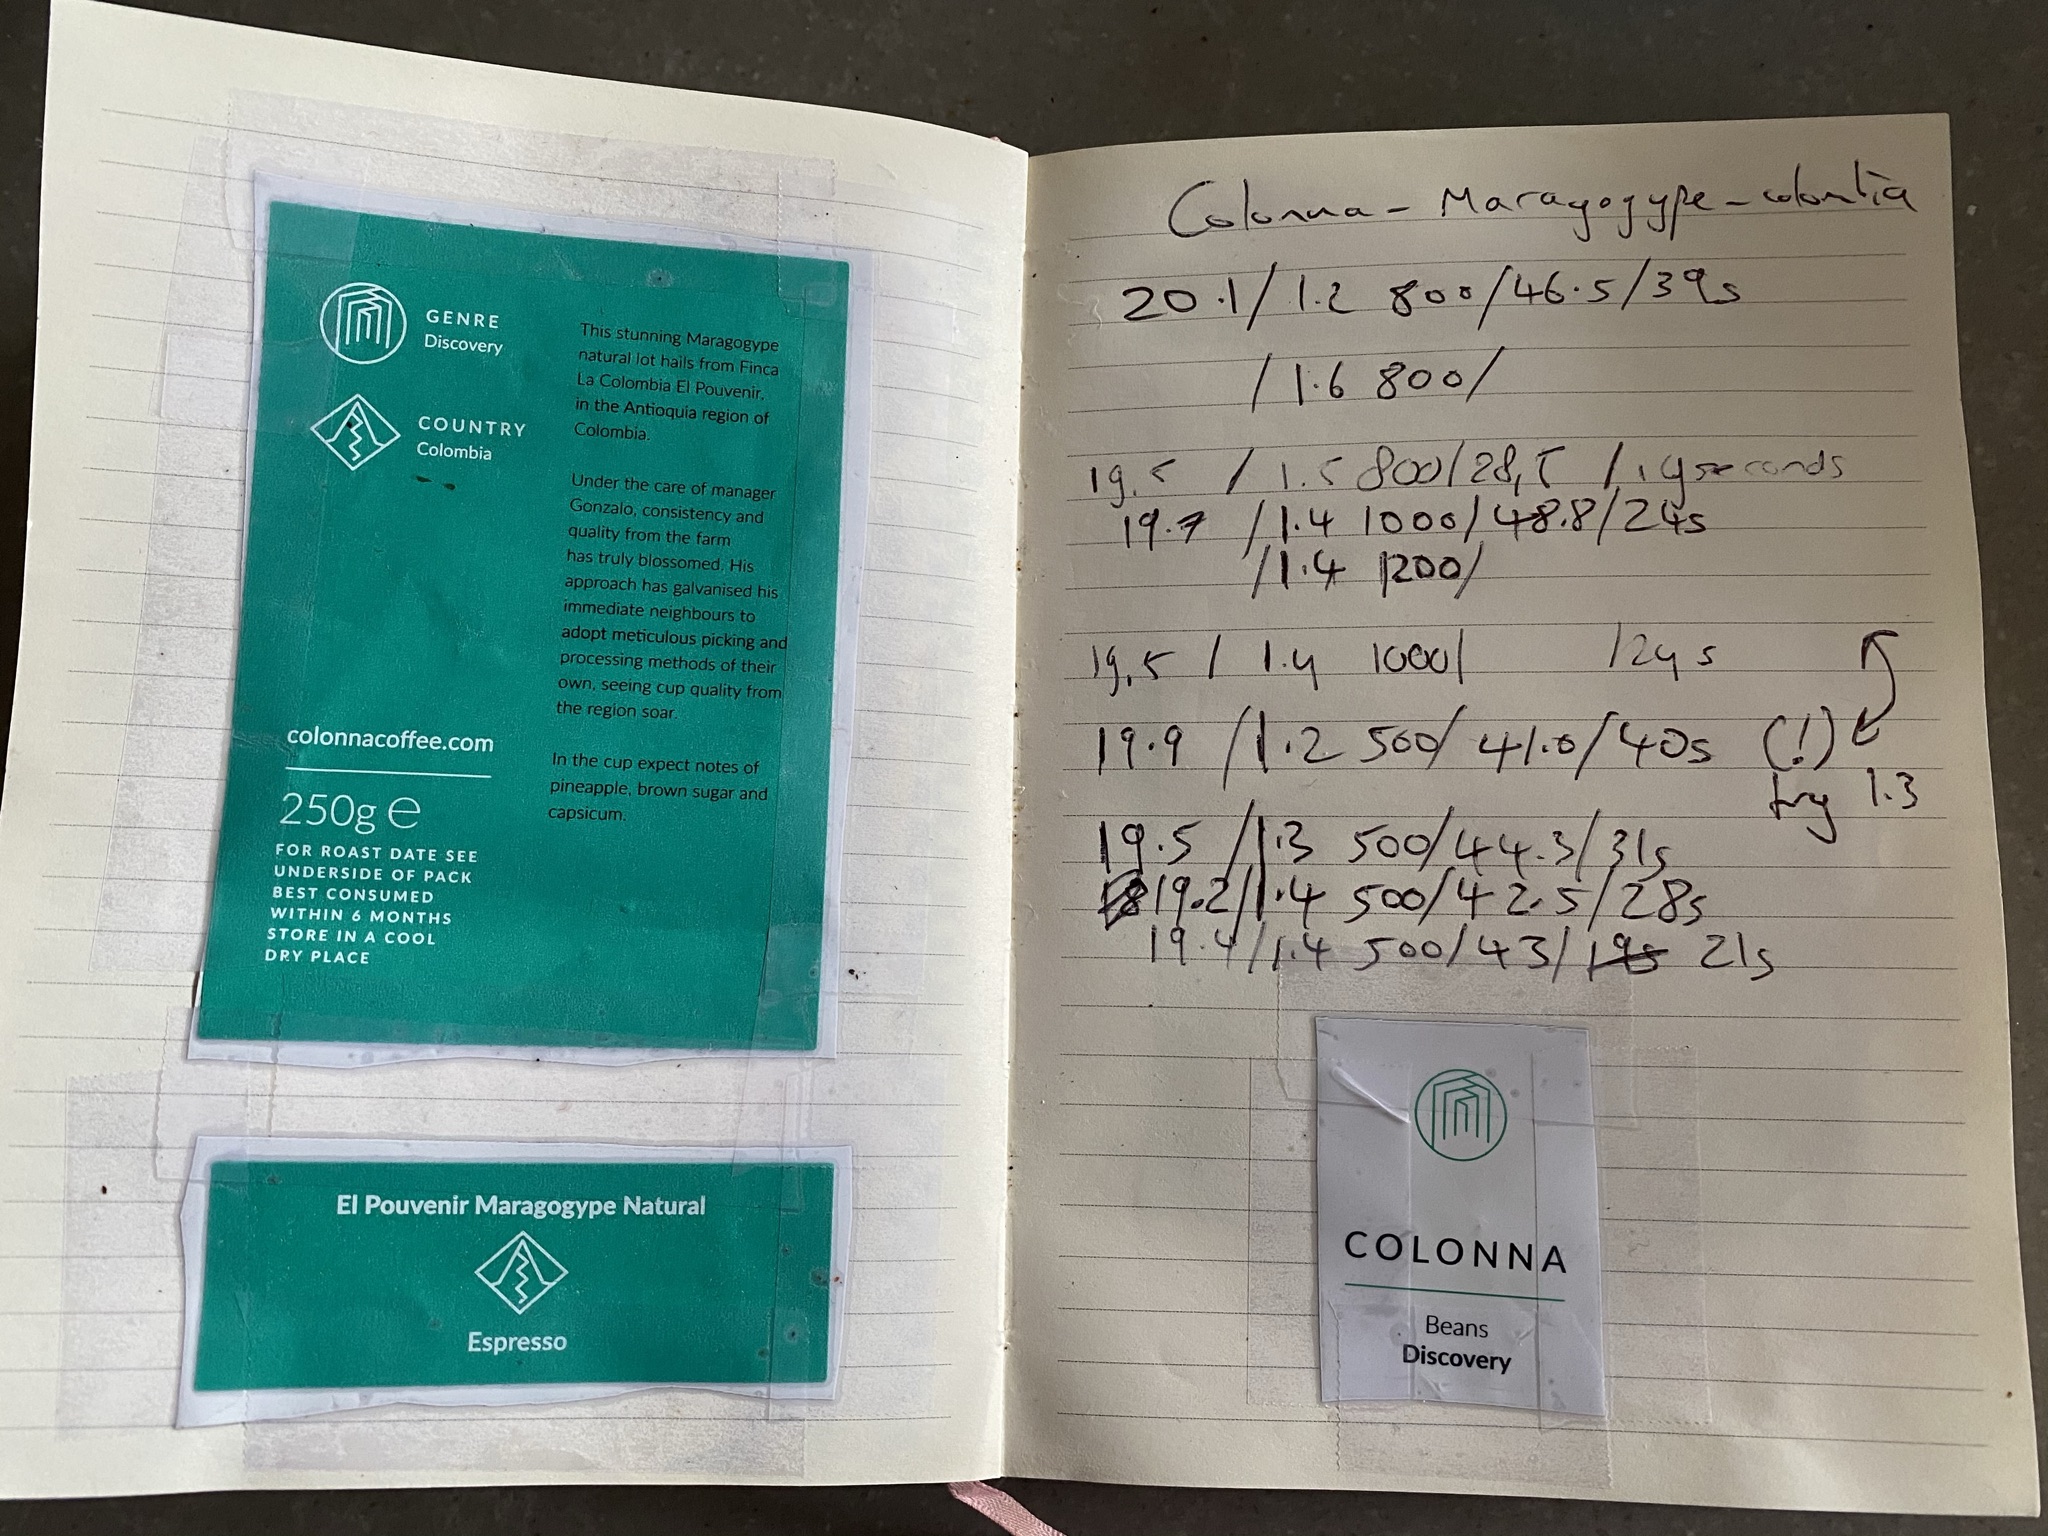 GENRE
Discovery
COUNTRY
Colombia
This stunning Maragogype
natural lot hails from Finca
La Colombia El Pouvenir,
in the Antioquia region of
Colombia.
Under the care of manager
Gonzalo, consistency and
quality from the farm
has truly blossomed. His
approach has galvanised his
immediate neighbours to
adopt meticulous picking and
processing methods of their
own, seeing cup quality from
the region soar.
In the cup expect notes of
pineapple, brown sugar and
capsicum.
colonnacoffee.com
250g ℮
FOR ROAST DATE SEE
UNDERSIDE OF PACK
BEST CONSUMED
WITHIN 6 MONTHS
STORE IN A COOL
DRY PLACE
El Pouvenir Maragogype Natural
Espresso
Colonna - Maragogype - colombia
20.1/1.2 800/46.5/39s
/1.6 800/
19.5 / 1.5 800/28,5 /14seconds
19.7 /1.4 1000/48.8/24s
/1.4 1200/
19,5 / 1.4 1000/ /24s
19.9 /1.2 500/41.0/40s (!)
try 1.3
19.5 /1.3 500/44.3/31s
19.2/1.4 500/42.5/28s
19.4/1.4 500/43/ 21s
COLONNA
Beans
Discovery